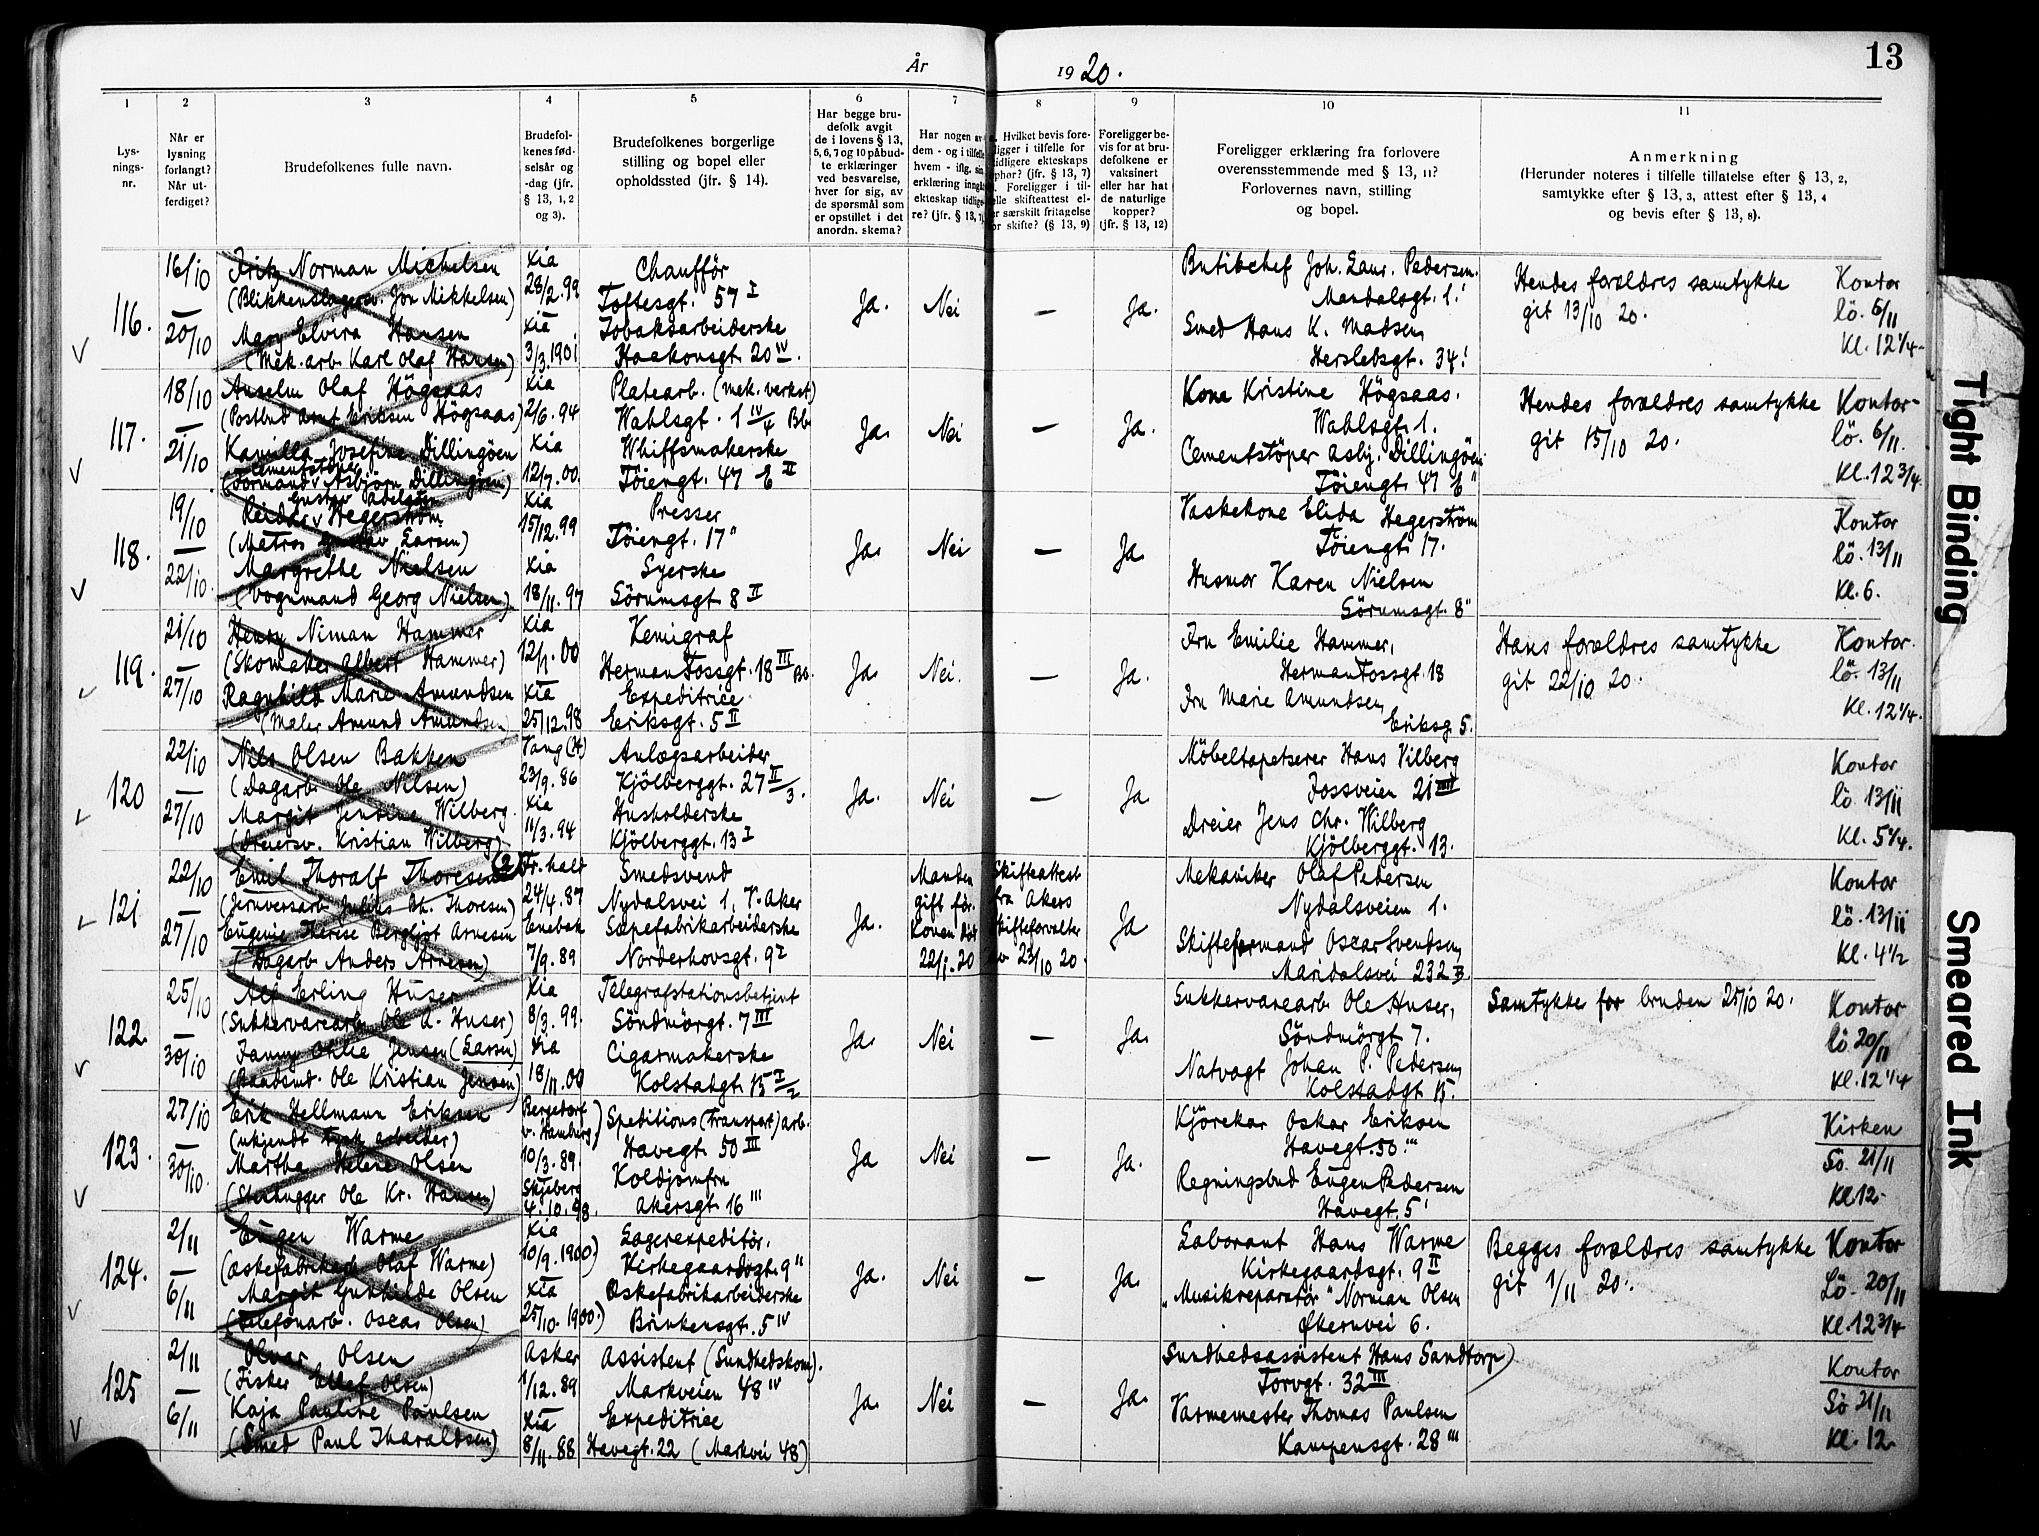 13
År 1920.
1
2
3
4
5
6
7
8
9
10
11
Lys-
nings-
nr.
Når er
lysning
forlangt?
Når ut-
ferdiget?
Brudefolkenes fulle navn.
Brudefol-
kenes fød-
selsår og
-dag (jfr.
§ 13, 1, 2
og 3).
Brudefolkenes borgerlige
stilling og bopel eller
opholdssted (jfr. § 14).
Har begge bru-
defolk avgit
de i lovens § 13,
5, 6, 7 og 10 påbud-
te erklæringer
ved besvarelse,
hver for sig, av
de spørsmål som
er opstillet i det
anordn. skema?
Har nogen av
dem - og i tilfelle
hvem - iflg. sin
erklæring inngått
ekteskap tidlige-
re? (jfr. § 13, 7)
Hvilket bevis fore-
ligger i tilfelle for
tidligere ekteskaps
ophør? (jfr. § 13, 7)
Foreligger i til-
felle skifteattest el-
er særskilt fritagelse
for skifte? (§ 13, 9)
Foreligger be-
vis for at bru-
defolkene er
vaksinert
eller har hat
de naturlige
kopper?
(jfr. § 13, 12)
Foreligger erklæring fra forlovere
overensstemmende med § 13, 11?
Forlovernes navn, stilling
og bopel.
Anmerkning
(Herunder noteres i tilfelle tillatelse efter § 13, 2,
samtykke efter § 13, 3, attest efter § 13, 4
og bevis efter § 13, 8).
116.
16/10
20/10
Fritz Norman Michelsen
(Blikkenslagersv. Jon Mikkelsen)
Mary Elvira Hansen
(Mek. arb. Karl Olaf Hansen)
Kia
28/2. 99
Kia
3/3. 1901
Chaufför
Toftesgt. 57 I
Tobaksarbeiderske
Haakonsgt. 20 IV.
Ja.
Nei
—
Ja.
Butikchef Joh. Laur. Pedersen.
Mandalsgt. 1.
Smed Hans K. Madsen
Herslebsgt. 34.
Hendes forældres samtykke
git 13/10 20.
Kontor
lö. 6/11
Kl. 12 1/4
117.
18/10
21/10
Anselm Olaf Högsaas
(Postbud Arnt Eriksen Högsaas)
Kamilla Josefine Dillingöen
Cementstöper
(Formand v Asbjörn Dillingöen)
Kia
2/6. 94
Kia
12/7. 00
Platearb. (mek. verkst)
Wahlsgt. 1 IV/4 Bb
Whiffsmakerske
Töiengt. 47 E II
Ja.
Nei
—
Ja.
Kona Kristine Högsaas.
Wahlsgt. 1.
Cementstöper Asbj. Dillingöen
Töiengt. 47 E II
Hendes forældres samtykke
git 15/10 20.
Kontor
lö. 6/11.
Kl. 12 3/4.
118.
19/10
22/10.
Gustav Adelsten
Reidar v Hegerström
(Matros Gustav Larsen)
Margrethe Nielsen
(Vognmand Georg Nielsen)
Kia
15/12. 99
Kia
18/11. 97
Presser
Töiengt. 17 II
Syerske
Sörumsgt 8 II
Ja.
Nei
—
Ja
Vaskekone Elida Hegerström
Töiengt. 17.
Husmor Karen Nielsen
Sörumsgt. 8 II
Kontor
lö. 13/11
Kl. 6.
119.
21/10
27/10
Henry Niman Hammer
(Skomaker Albert Hammer)
Ragnhild Marie Amundsen
(Maler Amund Amundsen)
Kia
12/1. 00
Kia
25/12. 98
Kemigraf
Herman Fossgt. 18 III Bb.
Expeditrice
Eriksgt. 5 II
Ja.
Nei.
—
Ja.
Fru Emilie Hammer,
Herman Fossgt. 18
Fru Marie Amundsen,
Eriksg 5.
Hans forældres samtykke
git 22/10 20.
Kontor.
lö. 13/11
Kl. 12 1/4.
120
22/10
27/10
Nils Olsen Bakken
(Dagarb. Ole Nilsen)
Margit Jensine Wilberg.
(Dreiersv. Kristian Wilberg)
Vang (H)
23/9. 86
Kia
11/3. 94
Anlægsarbeider
Kjölberggt. 27 II/3.
Husholderske
Kjölberggt. 13 I
Ja.
Nei
—
Ja
Möbeltapetserer Hans Vilberg
Fossveien 21 IIII
Dreier Jens Chr. Wilberg
Kjölberggt. 13.
Kontor
lö 13/11
Kl. 5 1/4.
121
22/10
27/10
Emil Thoralf Thoresen (2)
(Jernversarb. Julius Th. Thoresen)
Eugenie Therese Bergljot Arnesen
(Dagarb Anders Arnesen)
Fr. hald
24/4. 87
Enebak
7/9. 89
Smedsvend
Nydalsvei 1, V. Aker
Sæpefabrikarbeiderske
Norderhovsgt. 9 I
Ja.
Manden
gift för.
Konen död
22/1. 20
Skifteattest
fra Akers
skifteforvalter
av 23/10 20.
Ja
Mekaniker Olaf Pedersen
Nydalsveien 1.
Skifteformand Oscar Svendsen,
Maridalsvei 232 B.
Kontor
lö. 13/11
Kl. 4 1/2
122.
25/10
30/10
Alf Erling Huser
(Sukkervarearb. Ole A. Huser)
Fanny Othlie Jensen (Larsen)
(Baadsmd. Ole Kristian Jensen)
Kia
8/3. 99.
Kia
18/11. 00
Telegrafstationsbetjent
Söndmörgt. 7 III
Cigarmakerske
Kolstadgt. 15 I/2
Ja.
Nei
—
Ja.
Sukkervarearb. Ole Huser,
Söndmörgt 7.
Natvagt Johan P. Pedersen,
Kolstadgt 15.
Samtykke for bruden 25/10 20.
Kontor
lö 20/11
Kl. 12 1/4
123.
27/10
30/10.
Erik Hellmann Eriksen
(ukjendt tysk arbeider)
Martha Helene Olsen
(Stenhugger Ole Kr. Hansen)
Bergedorf
v. Hamburg)
10/3. 89.
Skjeberg
4. 10. 98.
Speditions (Transport) arb.
Havegt. 50 III
Koldjomfru
Akersgt. 16 III
Ja
Nei
—
Ja.
Kjörekar Oskar Eriksen
Havegt. 50 III
Regningsbud Eugen Pedersen
Havegt. 5
Kirken
Sö. 21/11
Kl 12-
124.
2/11
6/11
Eugen Warme
(Æskefabrikarb Olaf Warme)
Margit Gunhilde Olsen
(Telefonarb. Oscar Olsen)
Kia
10/9. 1900)
Kia
25/10. 1900.)
Lagerexpeditör.
Kirkegaardsgt. 9 II
Æskefabrikarbeiderske
Brinkensgt. 5 IV
Ja.
Nei
—
Ja.
Laborant Hans Warme
Kirkegaardsgt. 9 II
"Musikreparatör" Norman Olsen
Økernvei 6.
Begges forældres samtykke
git 1/11 20.
Kontor
Lö. 20/11
Kl. 12 3/4
125
2/11
6/11
Olvar Olsen
(Fisker Ellef Olsen)
Kaja Pauline Paulsen
(Smed Paul Tharaldsen)
Asker
1/12. 89
Kia
8/11. 88
Assistent (Sundhedskom).
Markveien 48 IV
Expeditrice
Havegt. 22 (Markvei 48)
Ja.
Nei
—
Ja.
Sundhedsassistent Hans Sandtorp
Torvgt. 32 III
Varmemester Thomas Paulsen
Kampensgt. 28 III
Kontor
Sö 21/11
Kl. 12
Tight Binding
Smeared Ink